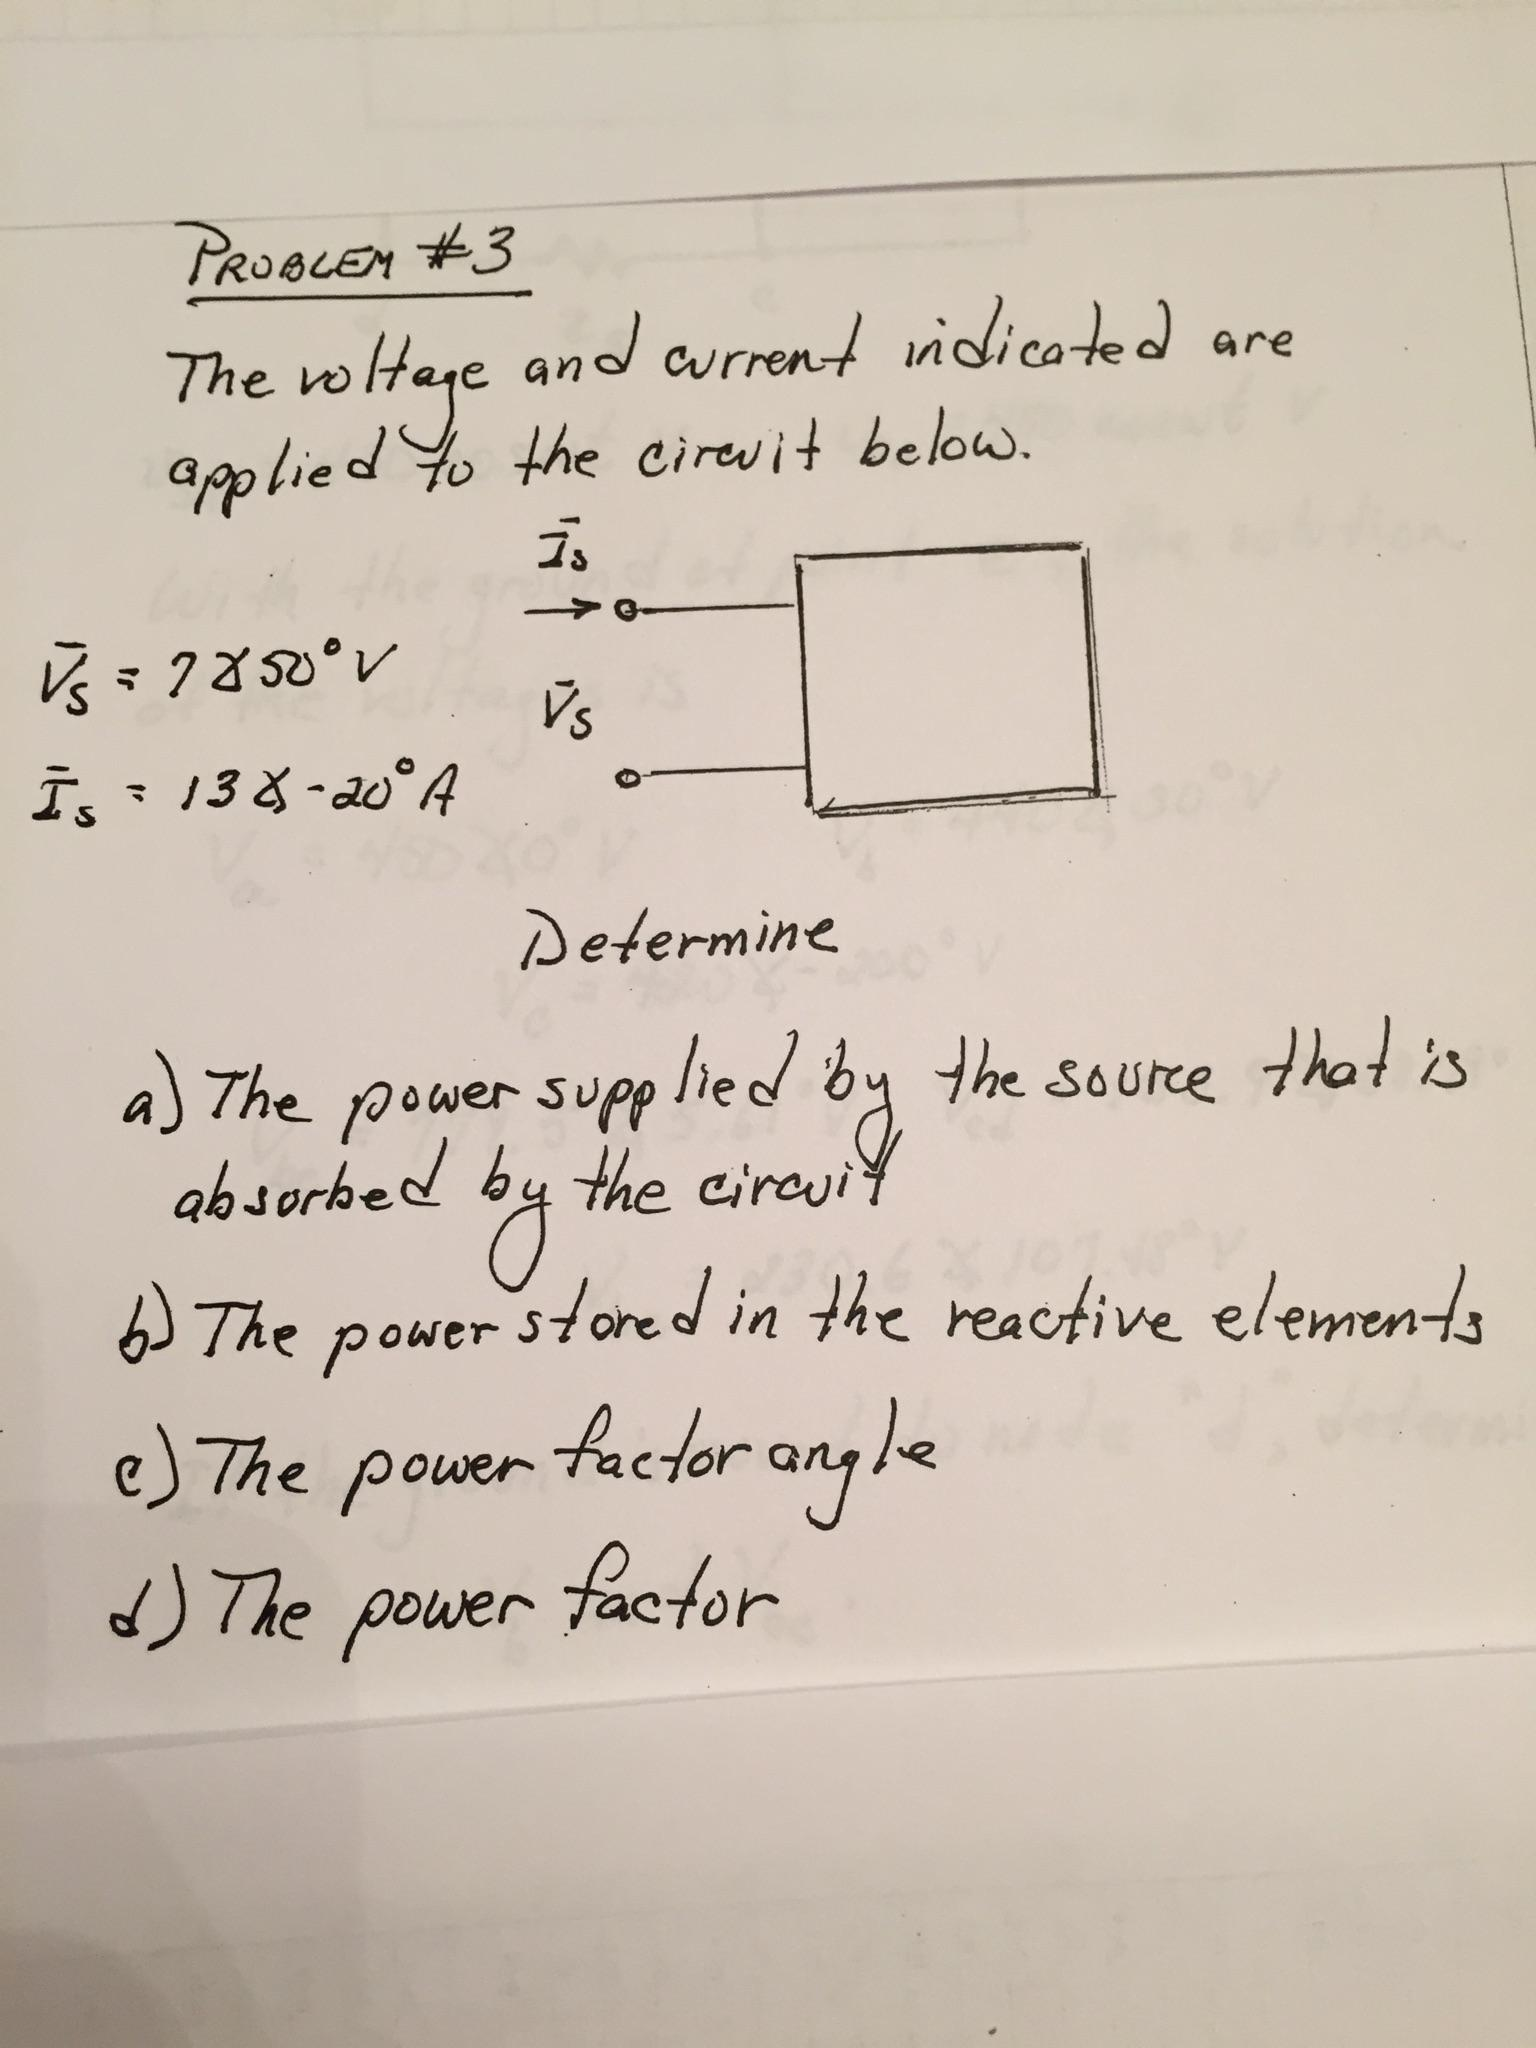 PROBLEM #3
The voltage and current indicated are
applied to the circuit below.
Īs
V̄s = 7∡50° V
V̄s
Īs = 13∡-20° A
Determine
a) The power supplied by the source that is
absorbed by the circuit
b) The power stored in the reactive elements
c) The power factor angle
d) The power factor